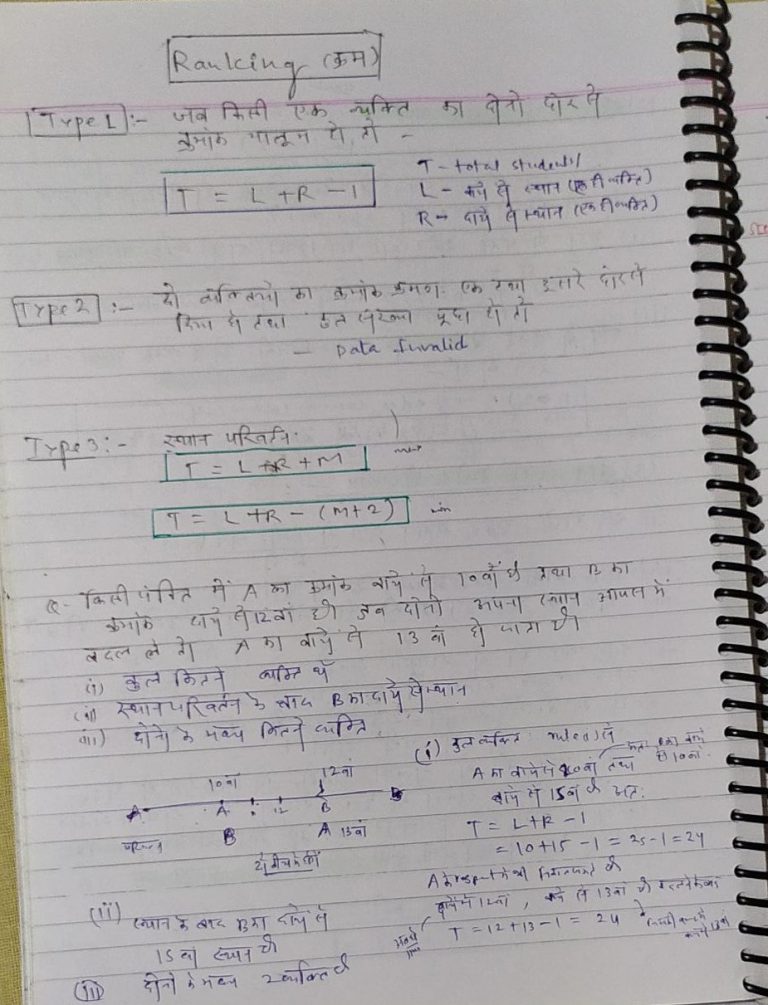 Ranking (क्रम)
Type 1 :- जब किसी एक व्यक्ति का दोनो छोर से
क्रमांक मालूम हो तो -
T = L + R - 1
T - total students
L - बायें से स्थान (एक ही व्यक्ति)
R - दायें से स्थान (एक ही व्यक्ति)
Type 2 :- दो व्यक्तियों का क्रमांक क्रमशः एक तथा दूसरे छोर से
दिया हो तथा कुल संख्या पूछा हो तो
- Data Invalid
Type 3 :- स्थान परिवर्तन
T = L + R + M
T = L + R - (M + 2) min
Q - किसी पंक्ति में A का क्रमांक बायें से 10वाँ है तथा B का
क्रमांक दायें से 12वां है। जब दोनो अपना स्थान आपस में
बदल ले तो A का बायें से 13 वां हो जाता है।
(i) कुल कितने व्यक्ति थे
(ii) स्थान परिवर्तन के बाद B का दायें से स्थान
(iii) दोनो के मध्य कितने व्यक्ति
10वां 12वां
A 12 B
B A 13वां
(i) कुल व्यक्ति
A का बायें से 10वां तथा
दायें से 15वां है अतः
T = L + R - 1
= 10 + 15 - 1 = 25 - 1 = 24
दायें से 12वां, बायें से 13वां है
T = 12 + 13 - 1 = 24
(ii) स्थान के बाद B का दायें से
15 वां स्थान है
(iii) दोनो के मध्य 2 व्यक्ति है